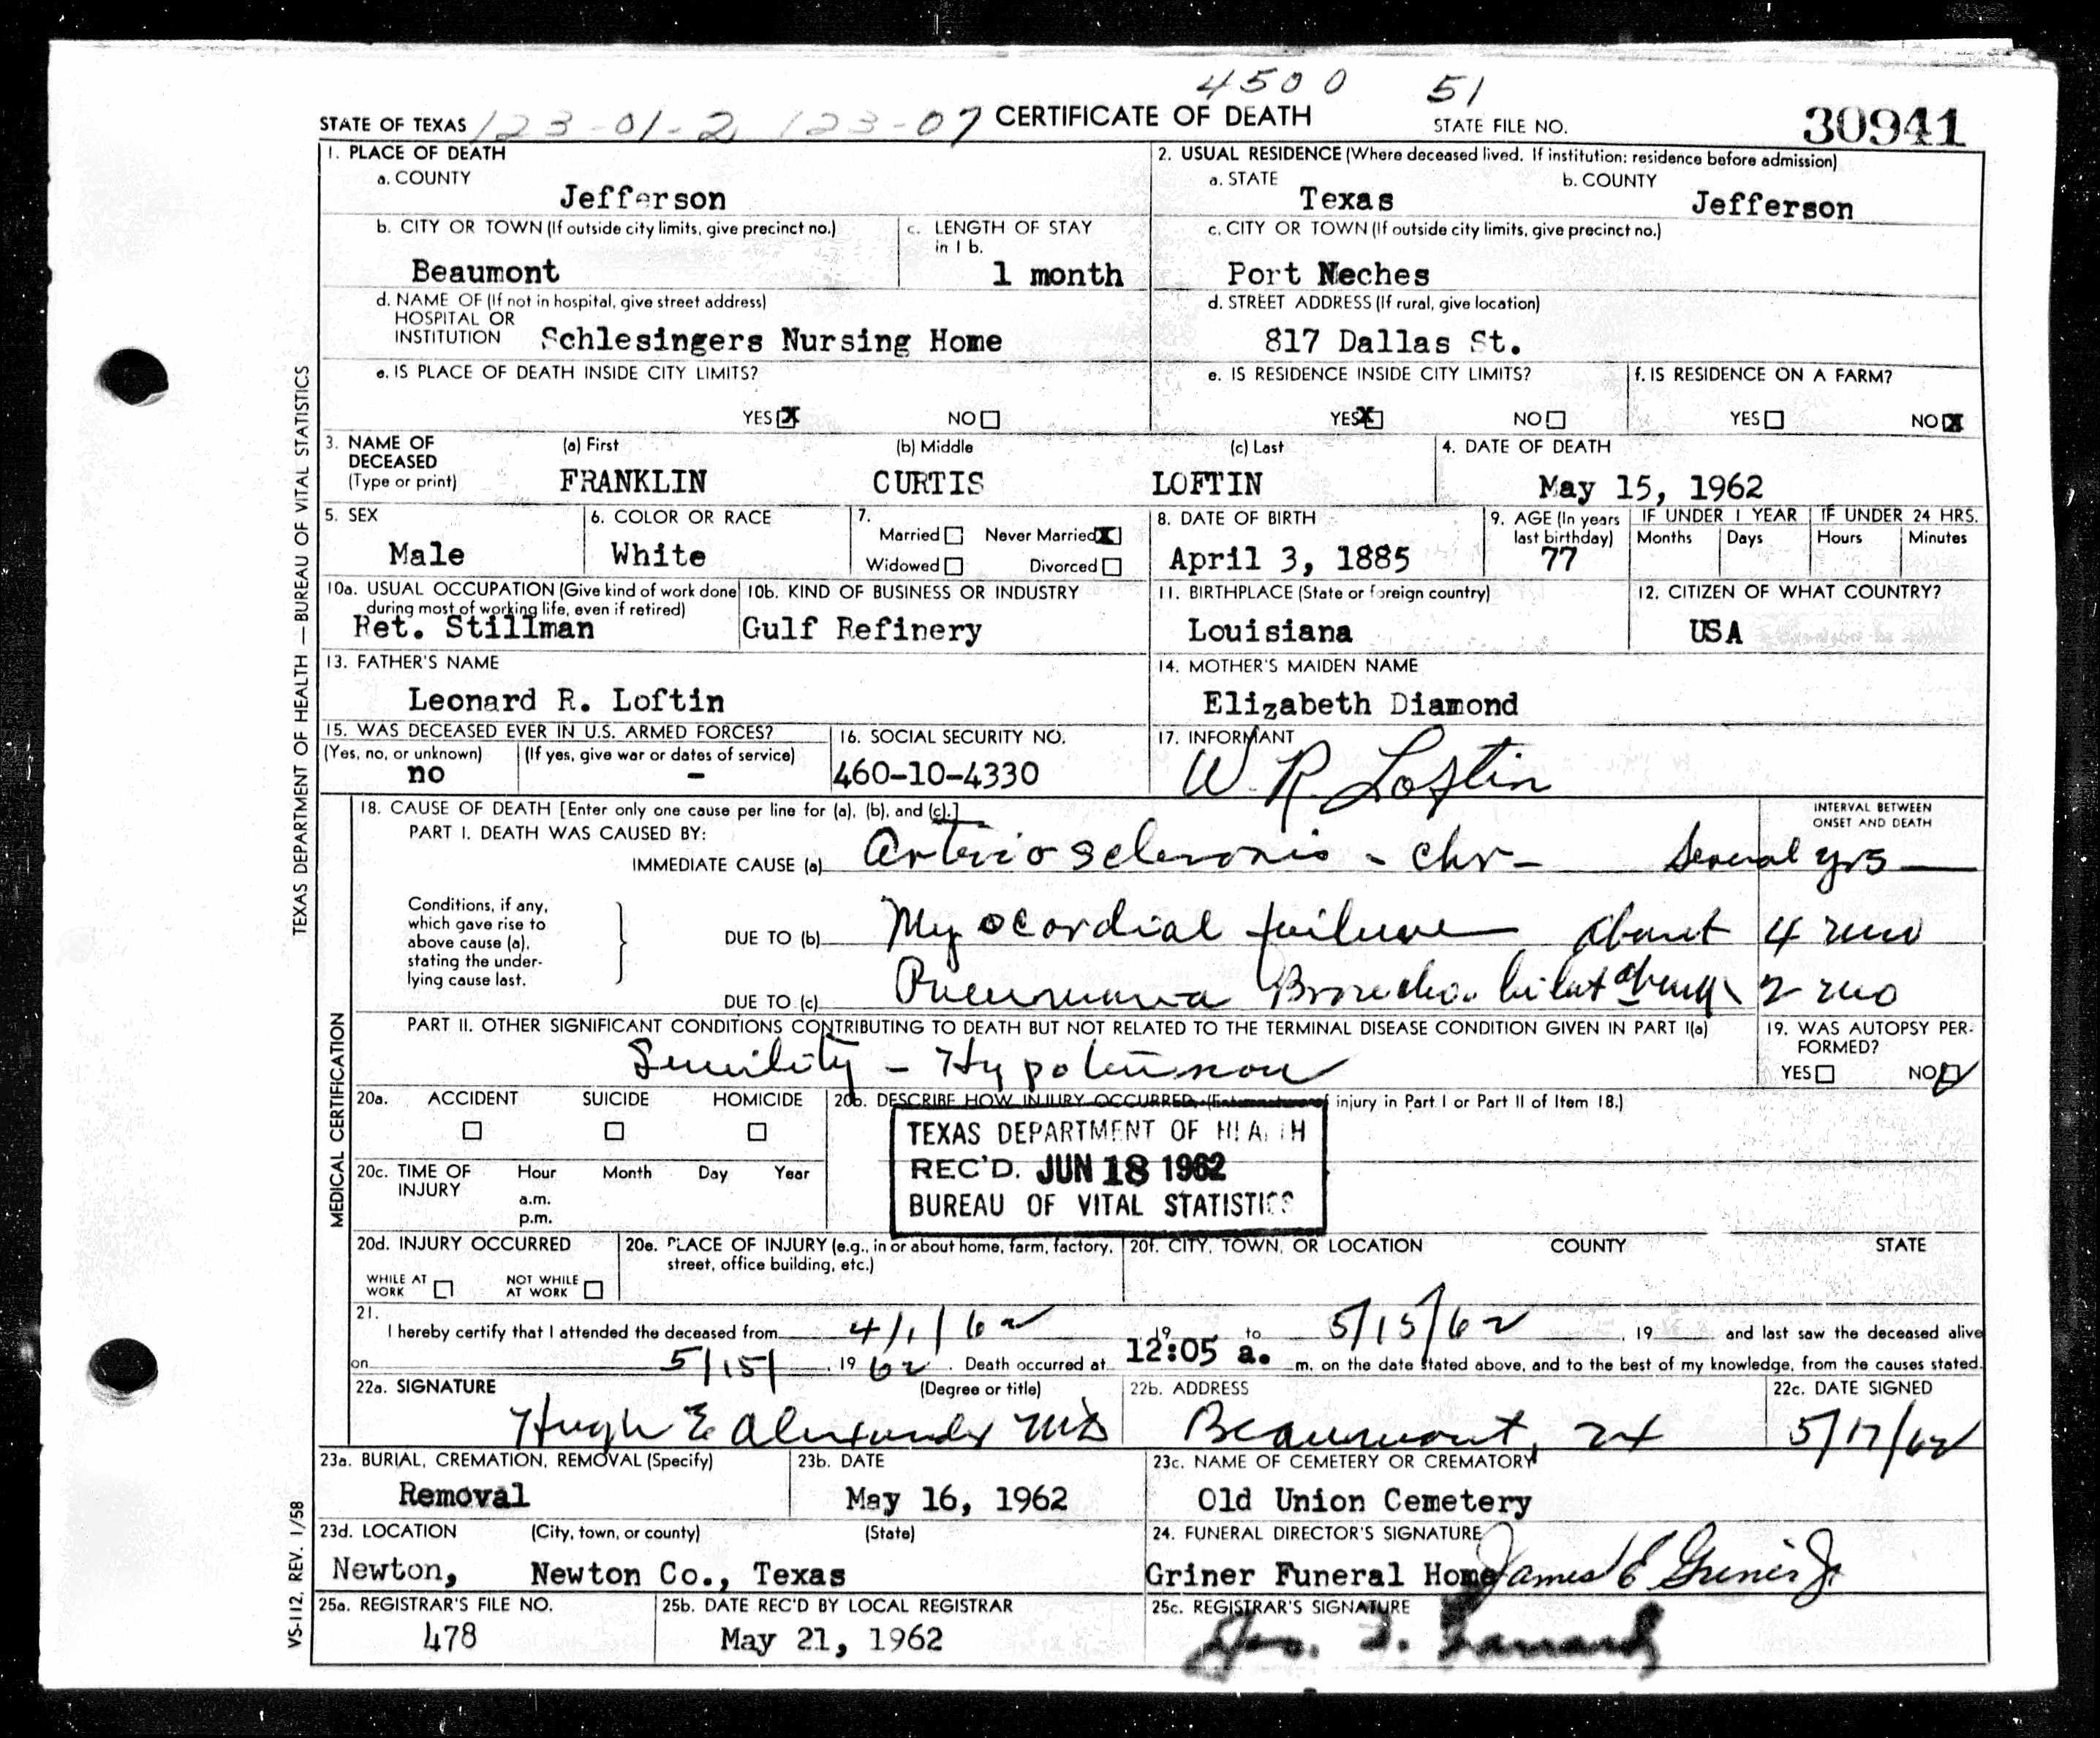 4500 51
STATE OF TEXAS 123-01-2 123-07 CERTIFICATE OF DEATH STATE FILE NO. 30941
1. PLACE OF DEATH
a. COUNTY
Jefferson
2. USUAL RESIDENCE (Where deceased lived. If institution: residence before admission)
a. STATE b. COUNTY
Texas Jefferson
b. CITY OR TOWN (If outside city limits, give precinct no.)
Beaumont
c. LENGTH OF STAY
in 1 b.
1 month
c. CITY OR TOWN (If outside city limits, give precinct no.)
Port Neches
d. NAME OF (If not in hospital, give street address)
HOSPITAL OR
INSTITUTION Schlesingers Nursing Home
d. STREET ADDRESS (If rural, give location)
817 Dallas St.
e. IS PLACE OF DEATH INSIDE CITY LIMITS?
YES X NO
e. IS RESIDENCE INSIDE CITY LIMITS?
YES X NO
f. IS RESIDENCE ON A FARM?
YES NO X
3. NAME OF (a) First (b) Middle (c) Last
DECEASED
(Type or print) FRANKLIN CURTIS LOFTIN
4. DATE OF DEATH
May 15, 1962
5. SEX
Male
6. COLOR OR RACE
White
7.
Married Never Married X
Widowed Divorced
8. DATE OF BIRTH
April 3, 1885
9. AGE (In years
last birthday)
77
IF UNDER 1 YEAR
Months Days
IF UNDER 24 HRS.
Hours Minutes
10a. USUAL OCCUPATION (Give kind of work done
during most of working life, even if retired)
Ret. Stillman
10b. KIND OF BUSINESS OR INDUSTRY
Gulf Refinery
11. BIRTHPLACE (State or foreign country)
Louisiana
12. CITIZEN OF WHAT COUNTRY?
USA
13. FATHER'S NAME
Leonard R. Loftin
14. MOTHER'S MAIDEN NAME
Elizabeth Diamond
15. WAS DECEASED EVER IN U.S. ARMED FORCES?
(Yes, no, or unknown) (If yes, give war or dates of service)
no -
16. SOCIAL SECURITY NO.
460-10-4330
17. INFORMANT
W. R. Loftin
18. CAUSE OF DEATH [Enter only one cause per line for (a), (b), and (c).]
INTERVAL BETWEEN
ONSET AND DEATH
PART I. DEATH WAS CAUSED BY:
IMMEDIATE CAUSE (a) Arteriosclerosis - chr - Several yrs
Conditions, if any,
which gave rise to
above cause (a),
stating the under-
lying cause last.
DUE TO (b) Myocardial failure about 4 mo
DUE TO (c) Pneumonia Broncho. bilat 2 mo
PART II. OTHER SIGNIFICANT CONDITIONS CONTRIBUTING TO DEATH BUT NOT RELATED TO THE TERMINAL DISEASE CONDITION GIVEN IN PART I(a)
Senility - Hypotension
19. WAS AUTOPSY PER-
FORMED?
YES NO
20a. ACCIDENT SUICIDE HOMICIDE
20b. DESCRIBE HOW INJURY OCCURRED. (Enter nature of injury in Part I or Part II of Item 18.)
TEXAS DEPARTMENT OF HEALTH
REC'D. JUN 18 1962
BUREAU OF VITAL STATISTICS
20c. TIME OF Hour Month Day Year
INJURY
a.m.
p.m.
20d. INJURY OCCURRED
WHILE AT
WORK
NOT WHILE
AT WORK
20e. PLACE OF INJURY (e.g., in or about home, farm, factory,
street, office building, etc.)
20f. CITY, TOWN, OR LOCATION COUNTY STATE
21.
I hereby certify that I attended the deceased from 4/1/62 19 to 5/15/62, 19 and last saw the deceased alive
on 5/15/, 19 62. Death occurred at 12:05 a. m. on the date stated above, and to the best of my knowledge, from the causes stated.
22a. SIGNATURE (Degree or title)
Hugh E Alexander MD
22b. ADDRESS
Beaumont, Tx
22c. DATE SIGNED
5/17/62
23a. BURIAL, CREMATION, REMOVAL (Specify)
Removal
23b. DATE
May 16, 1962
23c. NAME OF CEMETERY OR CREMATORY
Old Union Cemetery
23d. LOCATION (City, town, or county) (State)
Newton, Newton Co., Texas
24. FUNERAL DIRECTOR'S SIGNATURE
Griner Funeral Home James E Griner Jr
25a. REGISTRAR'S FILE NO.
478
25b. DATE REC'D BY LOCAL REGISTRAR
May 21, 1962
25c. REGISTRAR'S SIGNATURE
TEXAS DEPARTMENT OF HEALTH — BUREAU OF VITAL STATISTICS
MEDICAL CERTIFICATION
VS-112. REV. 1/58